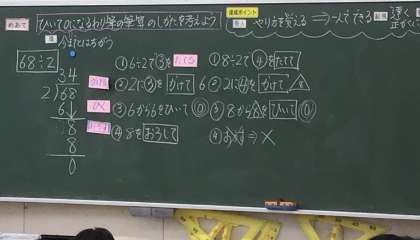 めあて ひいて0になるわり算の筆算のしかたを考えよう
達成ポイント
やり方を覚える ⇒ 一人でできる
今までとちがう
68÷2
34
2)68
6↓
8
8
0
①6÷2で③をたてる ①8÷2で④をたてて
②2に③をかけて 6 ②2に④をかけて 8
ひく ③6から6をひいて⓪ ③8から8をひいて⓪
④8をおろして ④おろす ⇒ ×